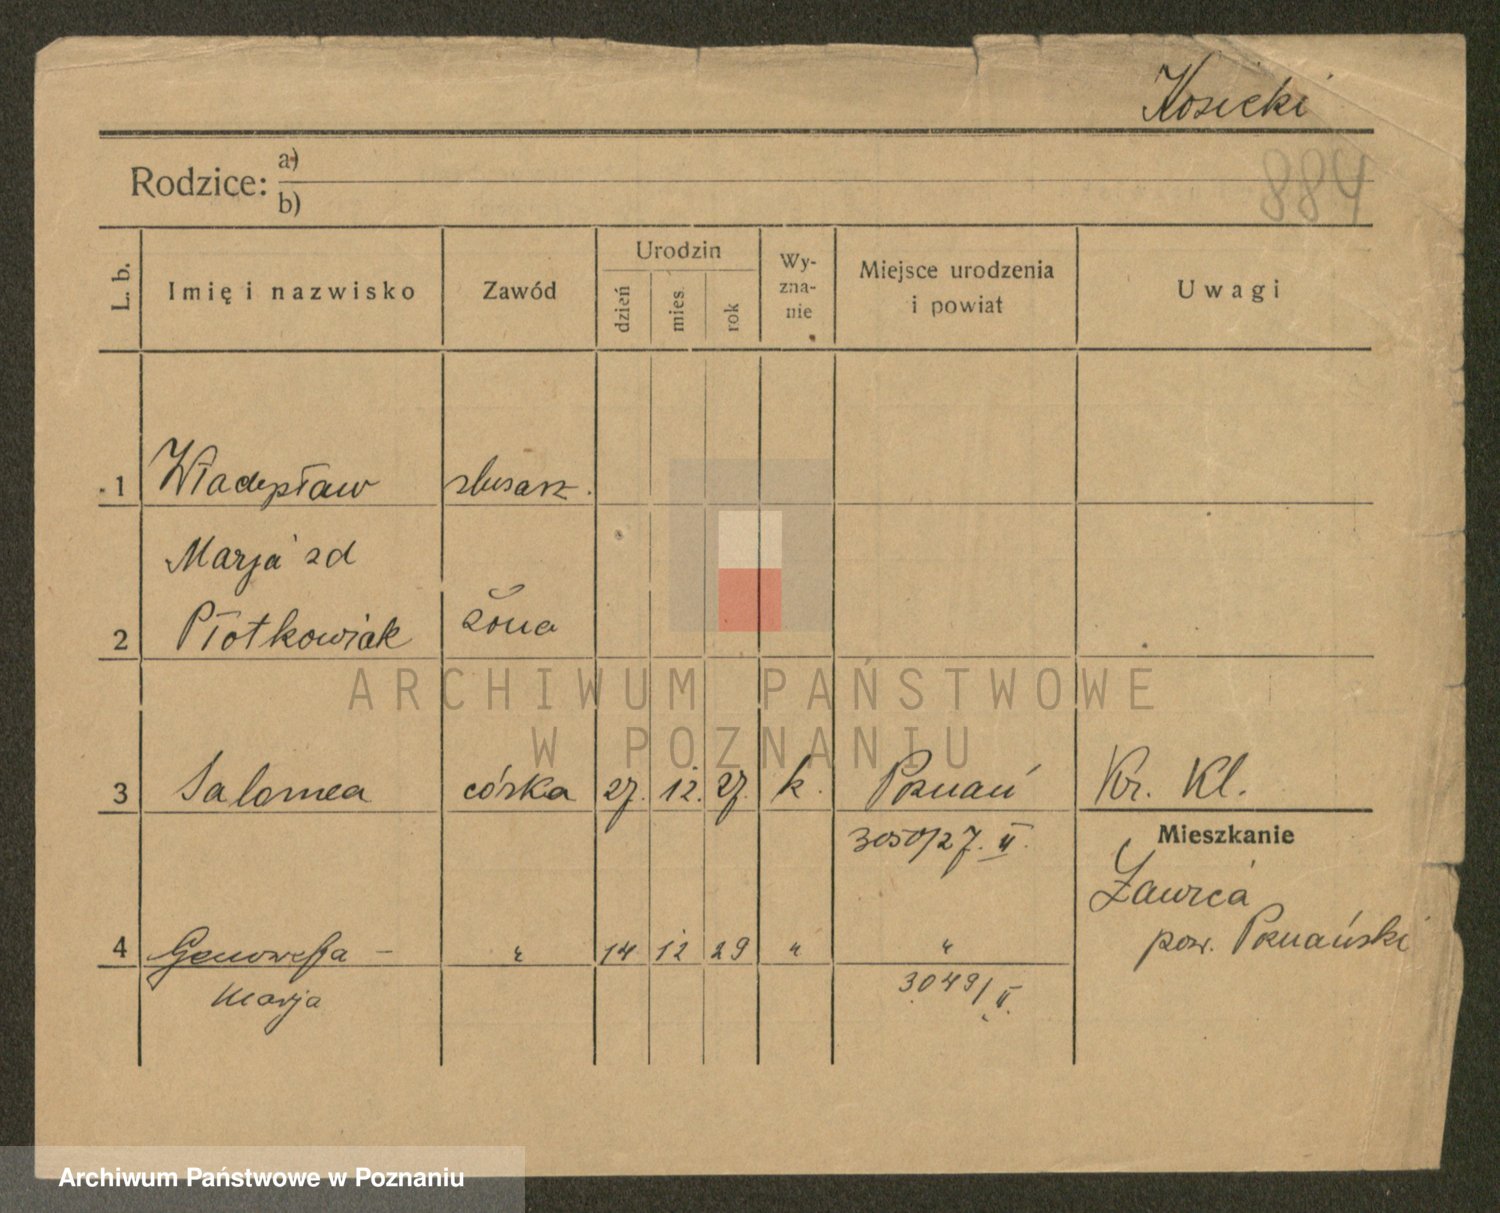 Kosicki
884
Rodzice: a)
b)
L. b.
Imię i nazwisko
Zawód
Urodzin
dzień
mies.
rok
Wy-
zna-
nie
Miejsce urodzenia
i powiat
Uwagi
1 Władysław ślusarz.
Marja zd
2 Płotkowiak żona
ARCHIWUM PAŃSTWOWE
W POZNANIU
3 Salomea córka 27. 12. 27. k. Poznań Kr. Kl.
3050/27. II.
Mieszkanie
Ławica
pow. Poznański
4 Genowefa - " 14 12 29 " "
Marja
3049/II.
Archiwum Państwowe w Poznaniu